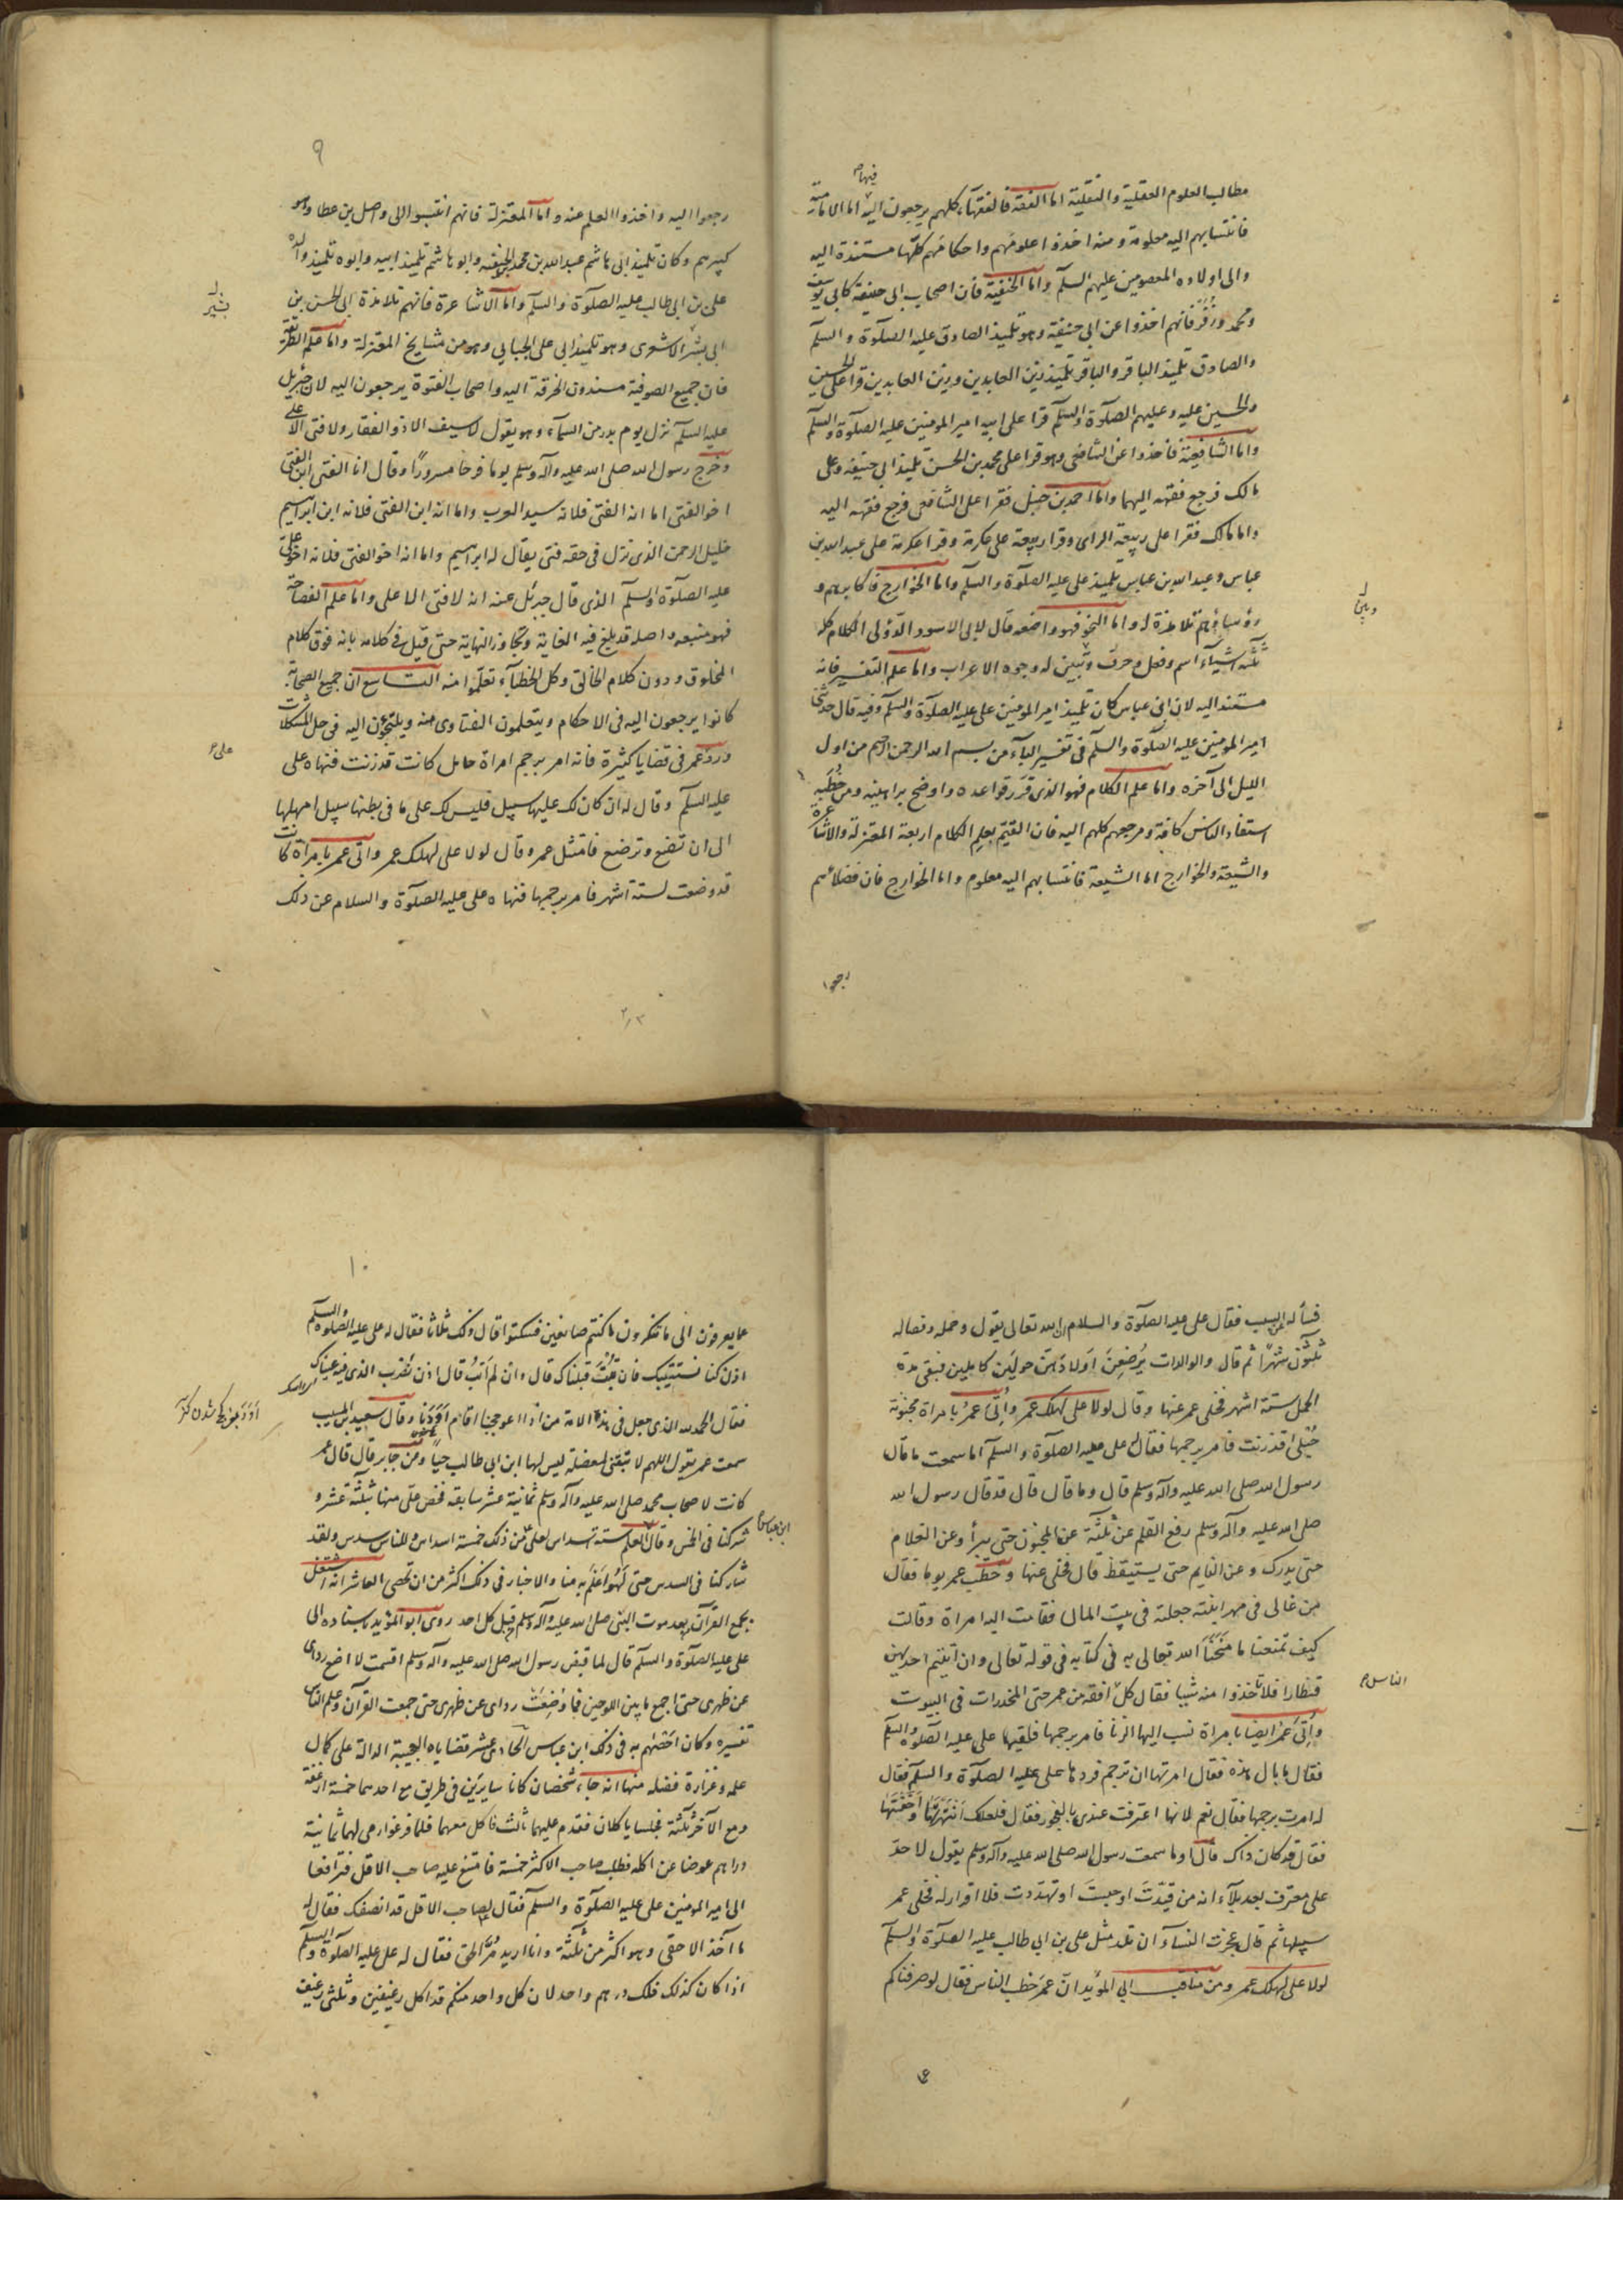 فيها م
مطالب العلوم العقلية والنقلية اما الفقه فالفقهاء كلهم يرجعون اليه اما الامامية
فانتسابهم اليه معلومة ومنه اخذوا علومهم واحكامهم كلها مستندة اليه
والى اولاده المعصومين عليهم السلم واما الحنفية فان اصحاب ابى حنيفة كابى يوسف
ومحمد وزفر فانهم اخذوا عن ابى حنيفة وهو تلميذ الصادق عليه الصلوة والسلم
والصادق تلميذ الباقر والباقر تلميذ زين العابدين وزين العابدين قرأ على الحسين
والحسين عليه وعليهم الصلوة والسلم قرا على ابيه امير المومنين عليه الصلوة والسلم
واما الشافعية فاخذوا عن الشافعى وهو قرا على محمد بن الحسن تلميذ ابى حنيفه وعلى
مالك فرجع فقهه اليهما واما احمد بن حنبل فقرا على الشافعى فرجع فقهه اليه
واما مالك فقرا على ربيعة الراى وقرا ربيعة على عكرمة وقرا عكرمة على عبد الله بن
عباس وعبد الله بن عباس تلميذ على عليه الصلوة والسلم واما الخوارج فاكابرهم و
رؤساؤهم تلامذة له واما النحو فهو واضعه قال لابى الاسود الدؤلى الكلام كله
ثلثة اشياء اسم وفعل وحرف وتبين له وجوه الاعراب واما علم التفسير فانه
وبين
مستند اليه لان ابن عباس كان تلميذ امير المومنين على عليه الصلوة والسلم وفيه قال حدثنى
امير المومنين عليه الصلوة والسلم فى تفسير الباء من بسم الله الرحمن الرحيم من اول
الليل الى آخره واما علم الكلام فهو الذى قرر قواعده واوضح براهينه ومن خطبه
استفاد الناس كافة ومرجعهم كلهم اليه فان القيم بعلم الكلام اربعة المعتزلة والاشاعرة
والشيعة والخوارج اما الشيعة فانتسابهم اليه معلوم واما الخوارج فان فضلائهم
رجعوا
٩
رجعوا اليه واخذوا العلم عنه واما المعتزلة فانهم انتسبوا الى واصل بن عطا وهو
كبيرهم وكان تلميذ ابى هاشم عبد الله بن محمد الحنفيه وابو هاشم تلميذ ابيه وابوه تلميذ والده
على بن ابى طالب عليه الصلوة والسلم واما الاشاعرة فانهم تلامذة ابى الحسن بن
بشير
ابى بشر الاشعرى وهو تلميذ ابى على الجبايى وهو من مشايخ المعتزلة واما علم الطريقة
فان جميع الصوفية مسندون الخرقة اليه واصحاب الفتوة يرجعون اليه لان جبرئيل
عليه السلم نزل يوم بدر من السماء وهو يقول لا سيف الا ذو الفقار ولا فتى الا على
وخرج رسول الله صلى الله عليه وآله وسلم يوما فرحا مسرورًا وقال انا الفتى ابن الفتى
اخو الفتى اما انه الفتى فلانه سيد العرب واما انه ابن الفتى فلانه ابن ابراهيم
خليل الرحمن الذى نزل فى حقه فتى يقال له ابراهيم واما انه اخو الفتى فلانه اخو على
عليه الصلوة والسلم الذى قال جبرئيل عنه انه لا فتى الا على واما علم الفصاحة
فهو منبعه واصله قد بلغ فيه الغاية وتجاوز النهاية حتى قيل فى كلامه بانه فوق كلام
المخلوق ودون كلام الخالق وكل الخطباء تعلموا منه التاسع ان جميع الصحابة
كانوا يرجعون اليه فى الاحكام ويتعلمون الفتاوى منه ويلتجؤن اليه فى حل المشكلات
ورد عمر فى قضايا كثيرة فانه امر برجم امراة حامل كانت قد زنت فنهاه على
على ع
عليه السلم وقال له ان كان لك عليها سبيل فليس لك على ما فى بطنها سبيل امهلها
الى ان تضع وترضع فامتثل عمر وقال لولا على لهلك عمر واتى عمر بامراة كانت
قد وضعت لستة اشهر فامر برجمها فنهاه على عليه الصلوة والسلام عن ذلك
فسأله عن السبب فقال على عليه الصلوة والسلام ان الله تعالى يقول وحمله وفصاله
ثلثون شهرًا ثم قال والوالدات يرضعن اولادهن حولين كاملين فبقى مدة
الحمل ستة اشهر فخلى عمر عنها وقال لولا على لهلك عمر واتى عمر بامراة مجنونة
حبلى قد زنت فامر برجمها فقال له على عليه الصلوة والسلم اما سمعت ما قال
رسول الله صلى الله عليه وآله وسلم قال وما قال قال قد قال رسول الله
صلى الله عليه وآله وسلم رفع القلم عن ثلثة عن المجنون حتى يبرأ وعن الغلام
حتى يدرك وعن النايم حتى يستيقظ قال فخلى عنها وخطب عمر يوما فقال
من غالى فى مهر ابنته جعلته فى بيت المال فقامت اليه امراة وقالت
كيف تمنعنا ما منحنا الله تعالى به فى كتابه فى قوله تعالى وان اتيتم احديهن
قنطارا فلا تاخذوا منه شيئا فقال كل افقه من عمر حتى المخدرات فى البيوت
الناس م
واتى عمر ايضا بامراة نسب اليها الزنا فامر برجمها فلقيها على عليه الصلوة والسلم
فقال ما بال هذه فقال امر بها ان ترجم فردها على عليه الصلوة والسلم فقال
له امرت برجمها فقال نعم لانها اعترفت عندى بالفجور فقال فلعلك انتهرتها او اخفتها
فقال قد كان ذاك قال او ما سمعت رسول الله صلى الله عليه وآله وسلم يقول لا حد
على معترف بعد بلاء انه من قيدت او حبست او تهددت فلا اقرار له فخلى عمر
سبيلها ثم قال عجزت النساء ان تلد مثل على بن ابى طالب عليه الصلوة والسلم
لولا على لهلك عمر ومن مناقب ابى المؤيد ان عمر خطب الناس فقال لو صرفناكم
١٠
عما يعرفون الى ما تنكرون ما كنتم صانعين فسكتوا قال ذلك ثلاثا فقال له على عليه الصلوة والسلم
اذن كنا نستتيبك فان تبت قبلناك قال وان لم اتب قال اذن نضرب الذى فيه عيناك
فقال الحمد لله الذى جعل فى هذه الامة من اذا اعوججنا اقام اودنا وقال سعيد بن المسيب
سمعت عمر يقول اللهم لا تبقنى لمعضلة ليس لها ابن ابى طالب حيا وعن جابر قال قال عمر
كانت لاصحاب محمد صلى الله عليه وآله وسلم ثمانية عشر سابقه فخص على منها بثلثة عشر و
ابن عباس
شركنا فى الخمس وقال العلم ستة اسداس لعلى من ذلك خمسة اسداس وللناس سدس ولقد
شاركنا فى السدس حتى لهو اعلم به منا والاخبار فى ذلك اكثر من ان تحصى العاشر انه اشتغل
بجمع القرآن بعد موت النبى صلى الله عليه وآله وسلم قبل كل احد روى ابو المؤيد باسناده الى
على عليه الصلوة والسلم قال لما قبض رسول الله صلى الله عليه وآله وسلم اقسمت لا اضع ردائى
عن ظهرى حتى اجمع ما بين اللوحين فما وضعت ردائى عن ظهرى حتى جمعت القرآن وعلم الناس
تفسيره وكان اخصهم به فى ذلك ابن عباس الحادى عشر قضاياه العجيبة الدالة على كمال
علمه وغزارة فضله منها انه جاء شخصان كانا سايرين فى طريق مع احدهما خمسة ارغفة
ومع الآخر ثلثة فجلسا ياكلان فقدم عليهما ثالث فاكل معهما فلما فرغوا رمى لهما ثمانية
دراهم عوضا عن اكله فطلب صاحب الاكثر خمسة فامتنع عليه صاحب الاقل فترافعا
الى امير المومنين على عليه الصلوة والسلم فقال لصاحب الاقل قد انصفك فقال له
ما آخذ الا حقى وهو اكثر من ثلثة وانا اريد مر الحق فقال له على عليه الصلوة والسلم
اذا كان كذلك فلك درهم واحد لان كل واحد منكم قد اكل رغيفين وثلثى رغيف